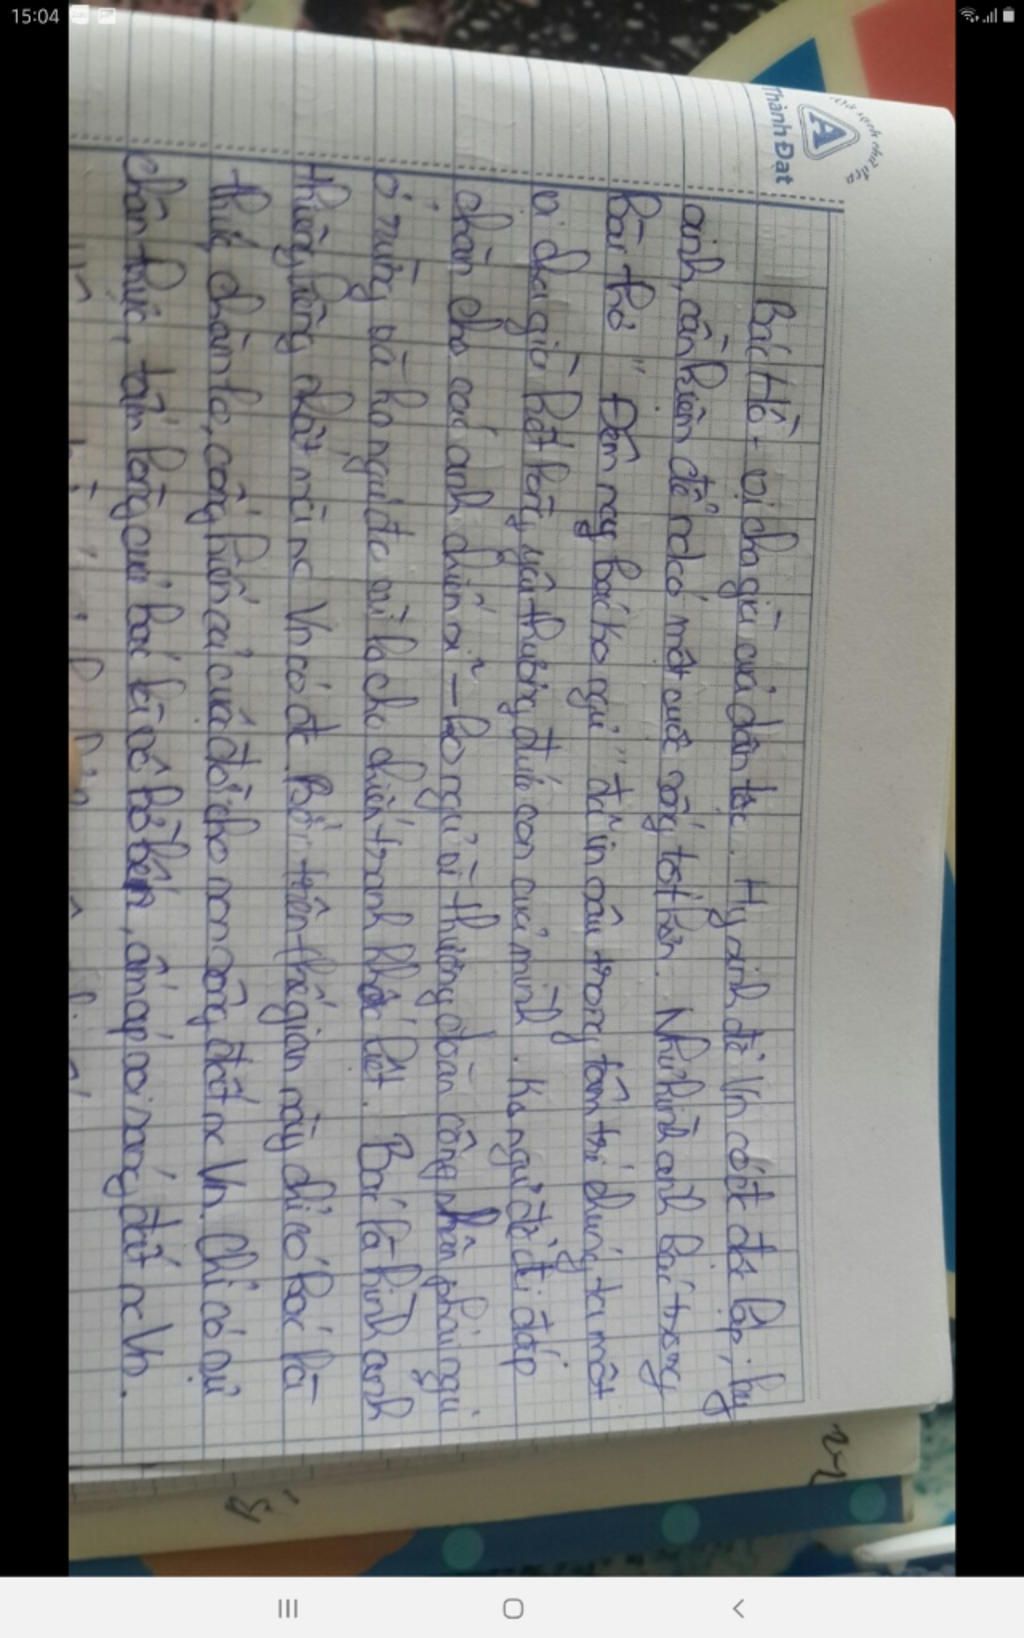 15:04
Nét chữ đẹp
A
Thành Đạt
Bác Hồ - vị cha già của dân tộc. Hy sinh để Vn có đc độc lập, hy
sinh, cần kiệm để nd có một cuộc sống tốt hơn. Như hình ảnh Bác trong
bài thơ " Đêm nay bác ko ngủ" đã in sâu trong tâm trí chúng ta một
vị cha già hết lòng yêu thương đứa con của mình. Ko ngủ để đi đắp
chăn cho các anh chiến sĩ - ko ngủ vì thương đoàn công nhân phải ngủ
ở rừng và ko ngủ đc vì lo cho chiến tranh khốc liệt. Bác là hình ảnh
thiêng liêng nhất mà nc Vn có đc. Bởi trên thế gian này chỉ có bác là
thức chăm lo, cống hiến cả cuộc đời cho non sông đất nc Vn. Chỉ có sự
chân thực, tấm lòng của bác là vô bờ bến, ấm áp soi sáng đất nc Vn.